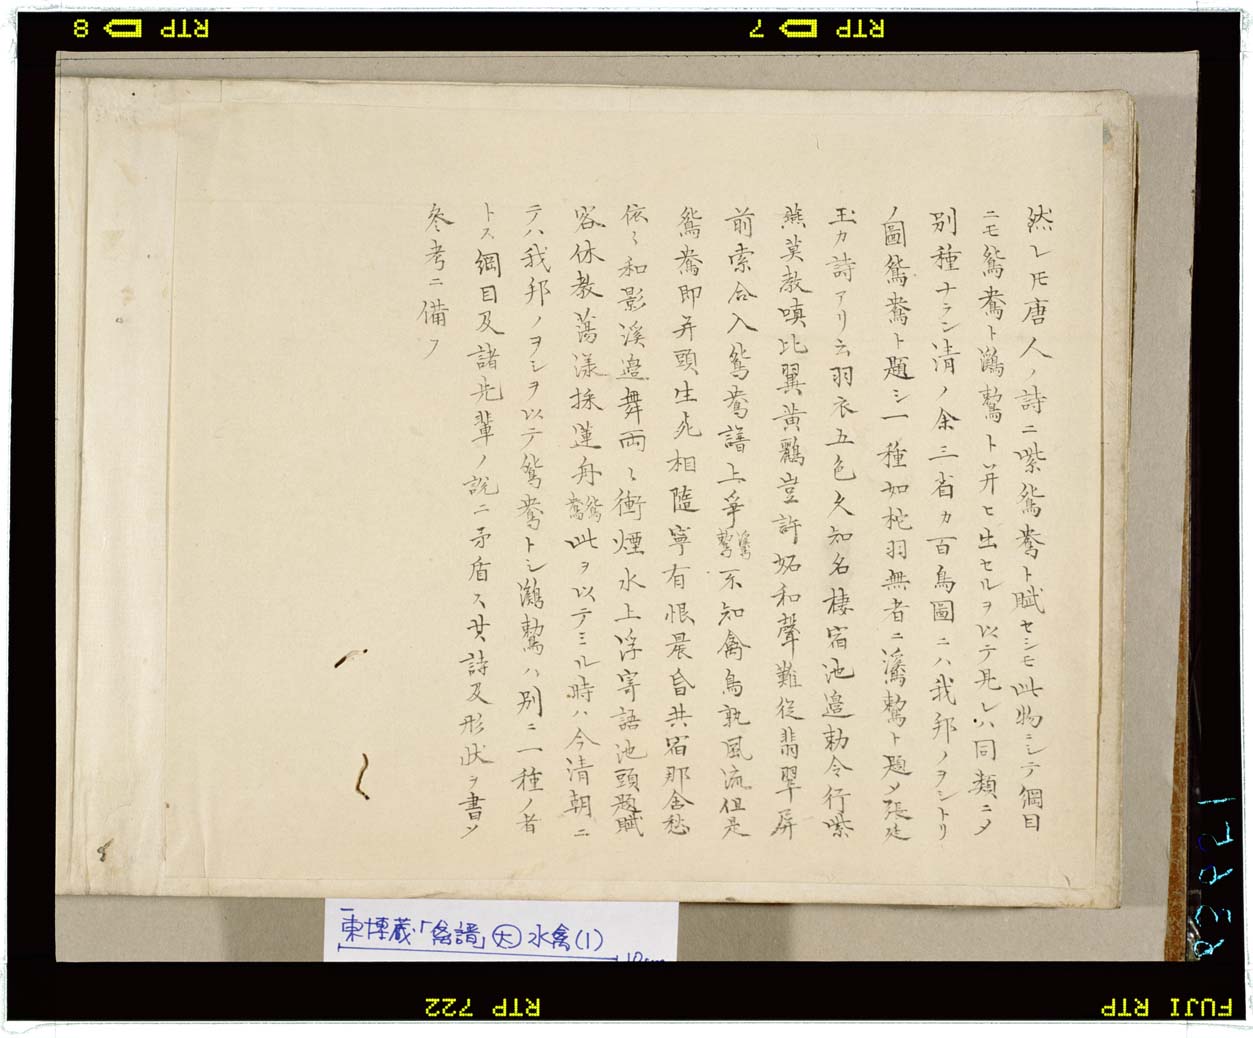 然レ𪜈唐人ノ詩ニ紫鴛鴦ト賦セシモ此物ニシテ綱目
ニモ鴛鴦ト鸂鷘ト并ヒ出セルヲ以テ見レハ同類ニメ
別種ナラン清ノ余三省カ百鳥圖ニハ我邦ノヲシトリ
ノ圖鴛鴦ト題シ一種如柁羽無者ニ鸂鷘ト題メ張廷
玉カ詩アリ云羽衣五色久知名棲宿池邉勅令行紫
燕莫教嗔比翼黄鸝豈許妬和聲難從翡翠屏
前索合入鴛鴦譜上爭鸂鷘不知禽鳥孰風流但是
鴛鴦即并頭生死相隨寧有恨晨昏共宿那舍愁
依〻和影溪邉舞両〻衝煙水上浮寄語池頭題賦
客休教蕩漾採蓮舟鴛鴦此ヲ以テミル時ハ今清朝ニ
テハ我邦ノヲシヲ以テ鴛鴦トシ鸂鷘ハ別ニ一種ノ者
トス綱目及諸先輩ノ説ニ矛盾ス其詩及形状ヲ書メ
参考ニ備フ
東博蔵「禽譜」大 水禽(1)
10cm
8 RTP
7 RTP
RTP 722
FUJI RTP